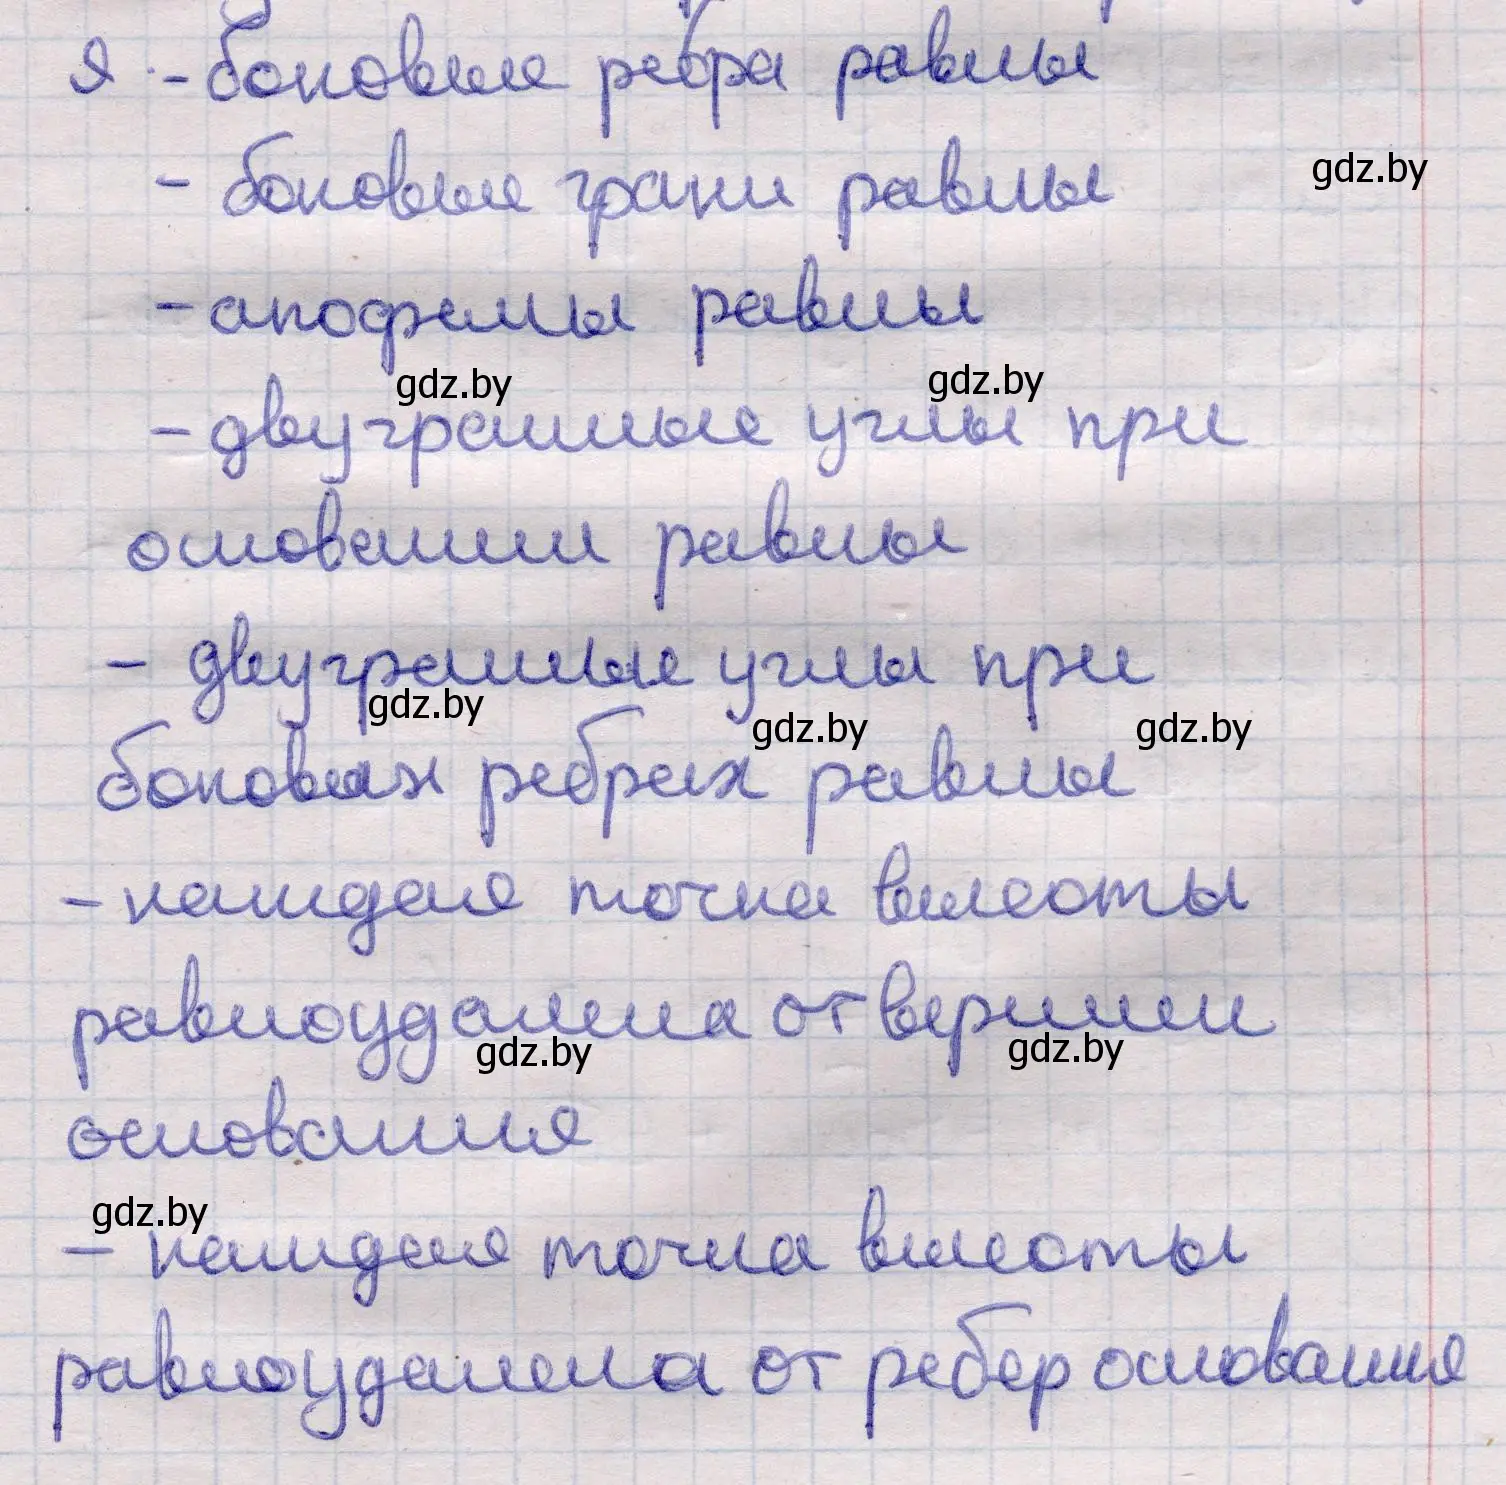 я - боковые ребра равны
- боковые грани равны
gdz.by
- апофемы равны
gdz.by gdz.by
- двугранные углы при
основании равны
- двугранные углы при
gdz.by gdz.by gdz.by
боковых ребрах равны
- каждая точка высоты
равноудалена от вершин
gdz.by gdz.by
основания
gdz.by
- каждая точка высоты
равноудалена от ребер основания